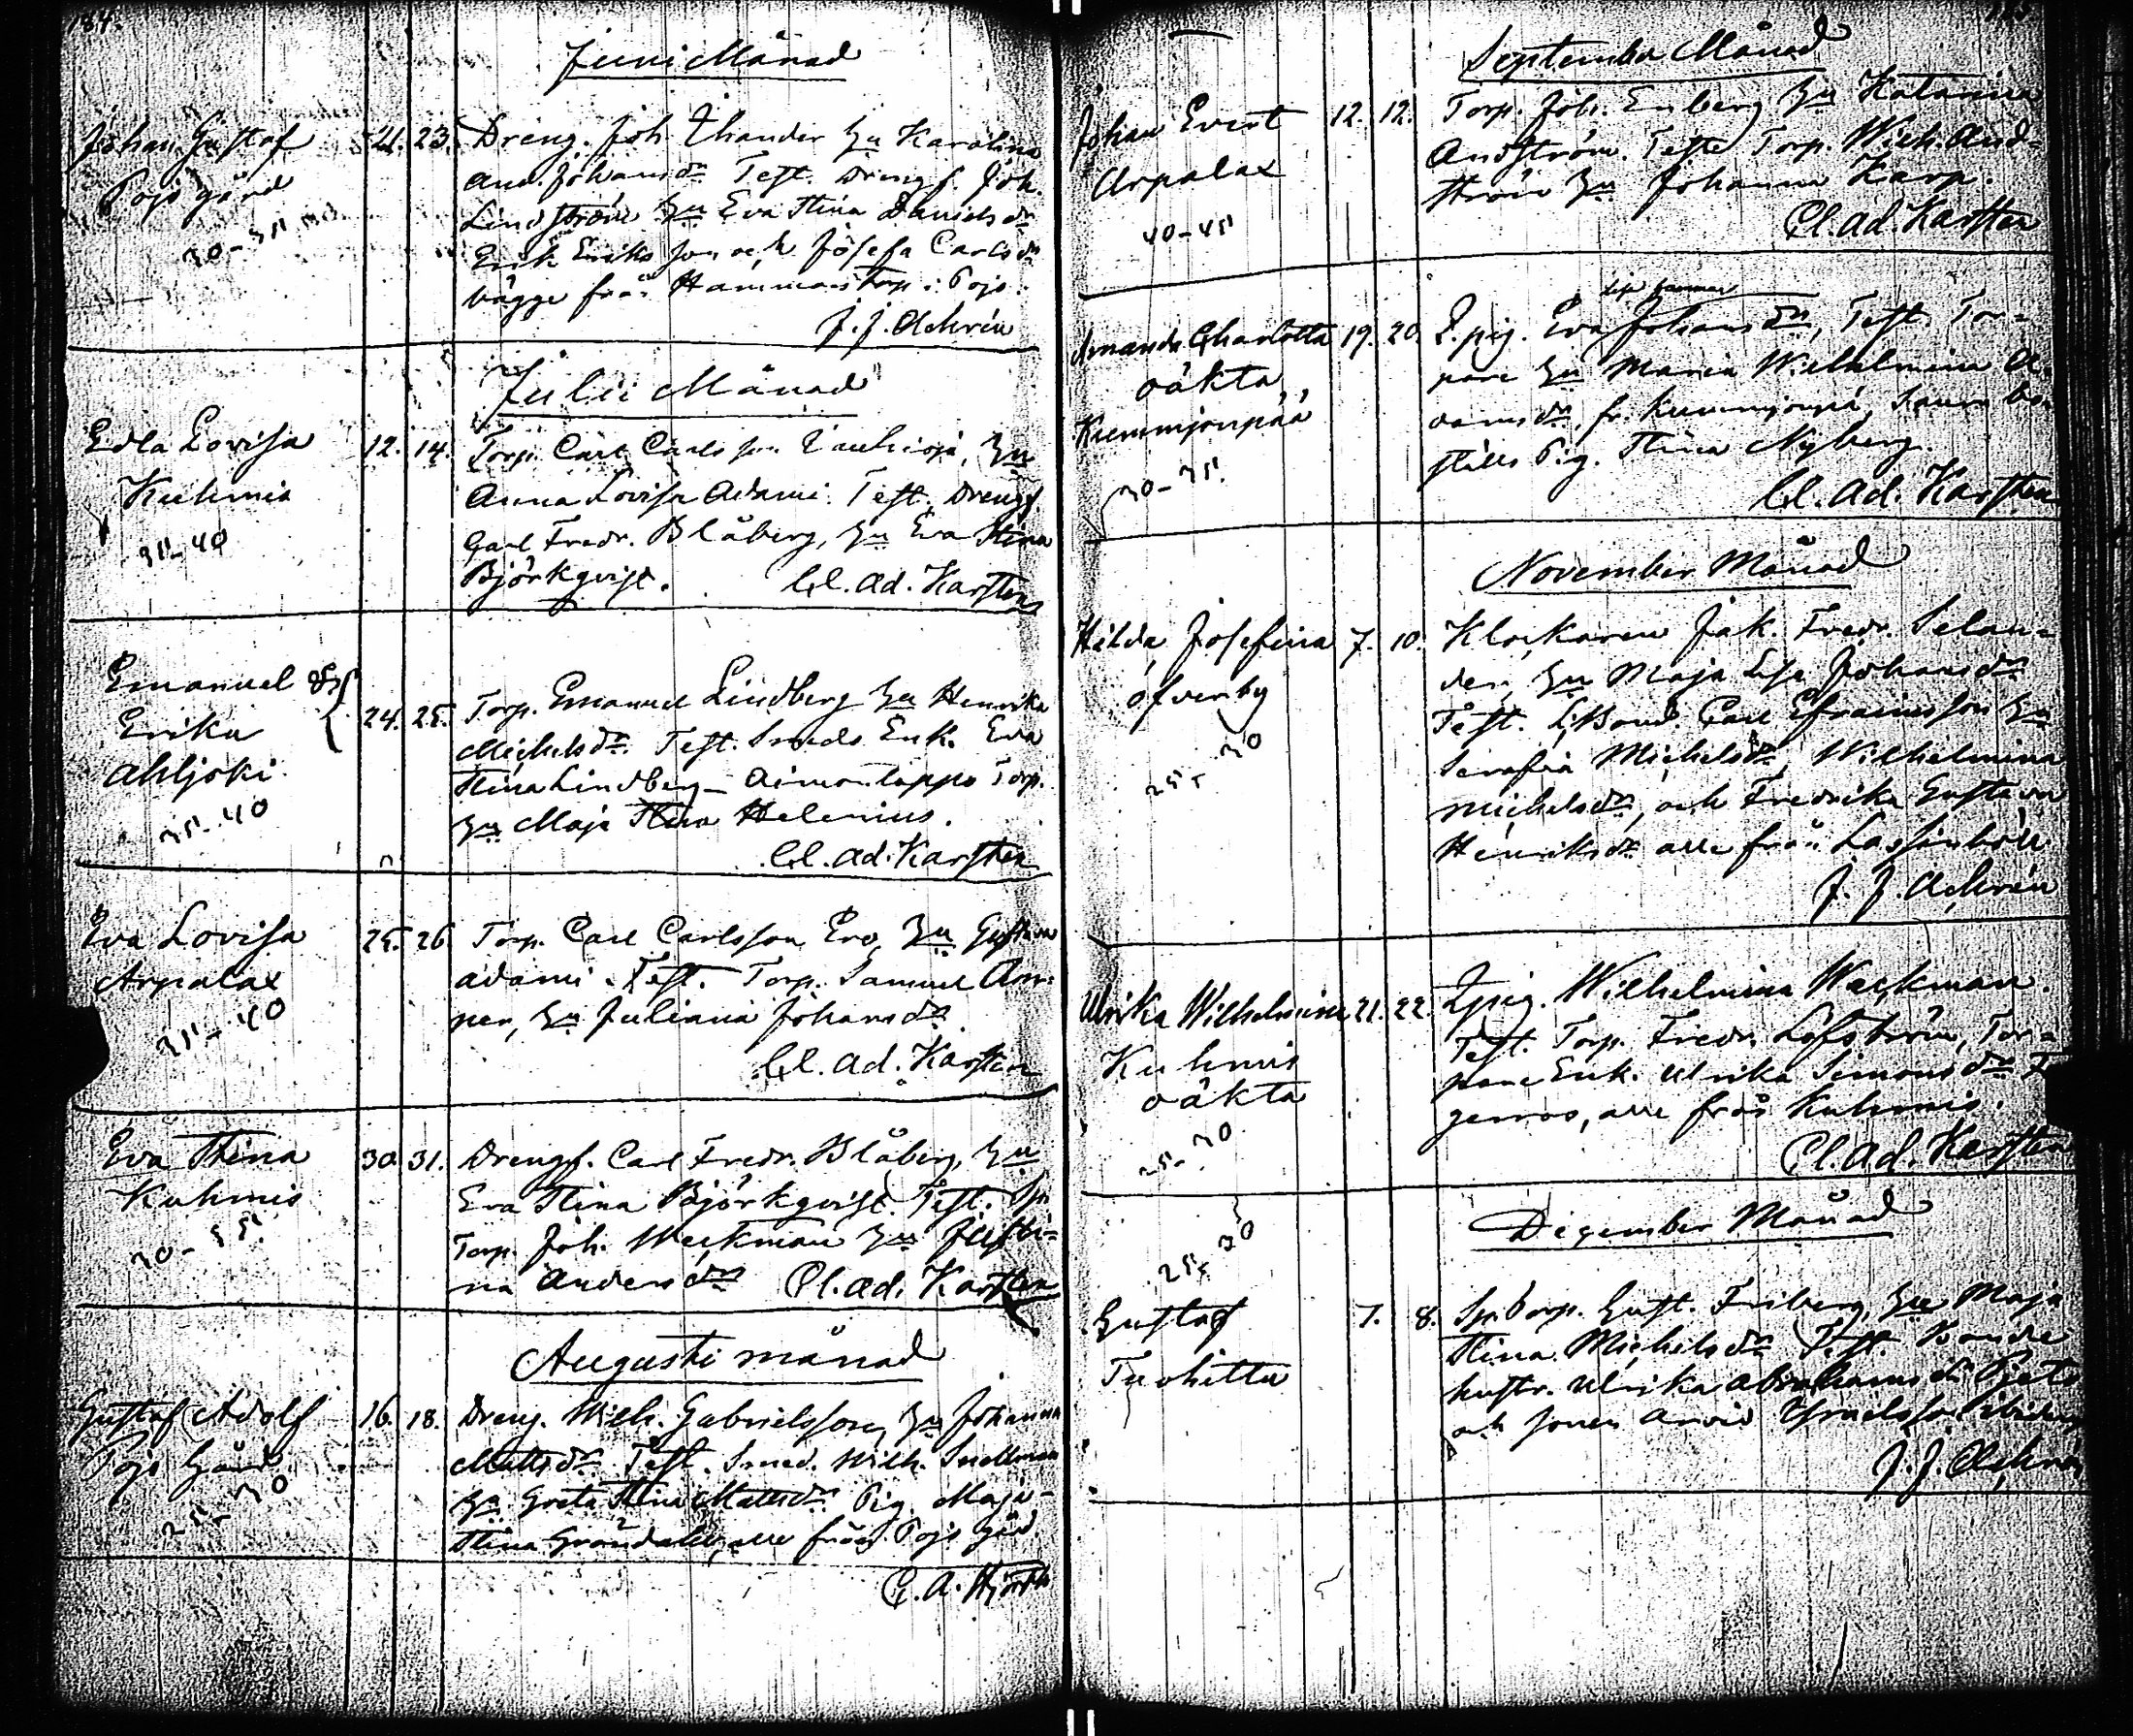 184.
Juni Månad
Johan Gustaf
Pojo gård
30-35
21. 23.
Dreng. Joh. Thander Hu Karolina
And. Johansdr. Test. Drengs. Joh.
Lindström Hu Eva Stina Davidsdr
Erik Eriksson och Josefa Carlsdr
bägge från Hammars Torp i Pojo.
J. J. Achrén
Julii Månad
Edla Lovisa
Kuhmis
35-40
12. 14.
Torp. Carl Carlsson Hu
Anna Lovisa Adami. Test. Drengs
Carl Fredr. Blåberg, Hu Eva Stina
Björkqvist.
Cl. Ad. Karsten
Emanuel &
Erika
Ahljoki
35-40
24. 25.
Torp. Emanuel Lindberg Hu Henrika
Michelsdr. Test. Smeds Enk. Eva
Stina Lindberg Torp.
Hu Maja Stina Helenius.
Cl. Ad. Karsten
Eva Lovisa
Arpalax
35-40
25. 26
Torp. Carl Carlsson Ero, Hu Gustava
Adami. Test. Torp. Samuel Am-
per, Hu Juliana Johansdr
Cl. Ad. Karsten
Eva Stina
Kuhmis
30-35
30. 31.
Drengs. Carl Fredr. Blåberg, Hu
Eva Stina Björkqvist. Test. Sp:
Torp. Joh. Weckman Hu Justi-
na Andersdr Cl. Ad. Karsten
Augusti månad
Gustaf Adolf
Pojo Gård
25-30
16. 18.
Dreng. Wilh. Gabrielsson, Hu Johanna
Mattsdr. Test. Smed. Wilh. Snellman
Hu Greta Stina Mattsdr. Pig. Maja
Stina Gröndahl, alle från Pojo gård.
C. A. Hjorth
September Månad
Johan Evert
Arpalax
40-45
12. 12.
Torp. Joh. Enberg Hu Katarina
Andström. Teste Torp. Wilh. And-
ström Hu Johanna Karp.
Cl. Ad. Karsten
Amanda Charlotta
oäkta
Kummjonpää
30-35
19. 20.
L. pig. Eva Johansdr, Test. Tor-
pare Hu Maria Wilhelmina A-
damsdr, fr. Kummjonpä, Saura bo-
ställs Pig. Stina Nyberg.
Cl. Ad. Karsten
November Månad
Hilda Josefina
öfverby
25-30
7. 10.
Klockaren Jak. Fredr. Selan-
der, Hu Maja Lisa Johansdr
Test. Bond. Carl Efraimsson Hu
Serafia Michelsdr, Wilhelmina
Michelsdr, och Fredrika Gustava
Henriksdr alle från Lassinböle
J. J. Achrén
Ulrika Wilhelmina
Kuhmis
oäkta
25-30
21. 22.
Lpig. Wilhelmina Weckman.
Test. Torp. Fredr. Löfström, Tor-
pare Enk. Ulrika Simonsdr
alle från Kuhmis.
Cl. Ad. Karsten
December Månad
25-30
Gustaf
Tuohittu
7. 8.
Sp. torp. Gust. Friberg, Hu Maja
Stina Michelsdr Test. Bonde
hustr. Ulrika Abrahamsdr
och sonen Arvid
J. J. Achrén